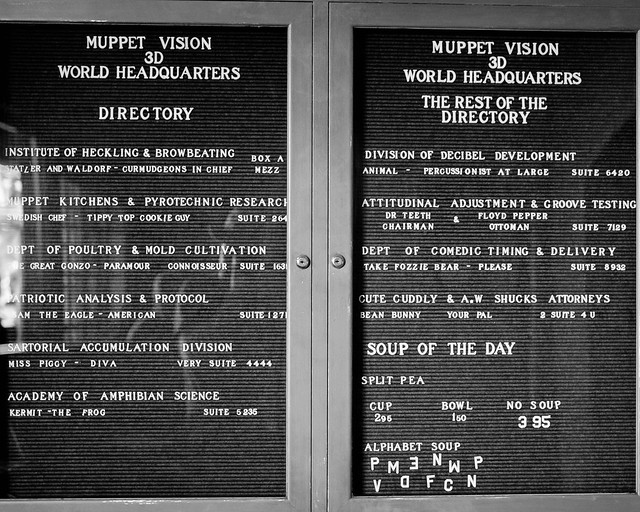 MUPPET VISION
3D
WORLD HEADQUARTERS
DIRECTORY
INSTITUTE OF HECKLING & BROWBEATING BOX A
STATLER AND WALDORF - CURMUDGEONS IN CHIEF MEZZ
MUPPET KITCHENS & PYROTECHNIC RESEARCH
SWEDISH CHEF - TIPPY TOP COOKIE GUY SUITE 264
DEPT OF POULTRY & MOLD CULTIVATION
THE GREAT GONZO - PARAMOUR CONNOISSEUR SUITE 163
PATRIOTIC ANALYSIS & PROTOCOL
SAM THE EAGLE - AMERICAN SUITE 127
SARTORIAL ACCUMULATION DIVISION
MISS PIGGY - DIVA VERY SUITE 4444
ACADEMY OF AMPHIBIAN SCIENCE
KERMIT -THE FROG SUITE 5235
MUPPET VISION
3D
WORLD HEADQUARTERS
THE REST OF THE
DIRECTORY
DIVISION OF DECIBEL DEVELOPMENT
ANIMAL - PERCUSSIONIST AT LARGE SUITE 6420
ATTITUDINAL ADJUSTMENT & GROOVE TESTING
DR TEETH & FLOYD PEPPER
CHAIRMAN OTTOMAN SUITE 7129
DEPT OF COMEDIC TIMING & DELIVERY
TAKE FOZZIE BEAR - PLEASE SUITE 8932
CUTE CUDDLY & A.W SHUCKS ATTORNEYS
BEAN BUNNY YOUR PAL 2 SUITE 4 U
SOUP OF THE DAY
SPLIT PEA
CUP BOWL NO SOUP
295 150 3 95
ALPHABET SOUP
P M E N W P
V D F C N